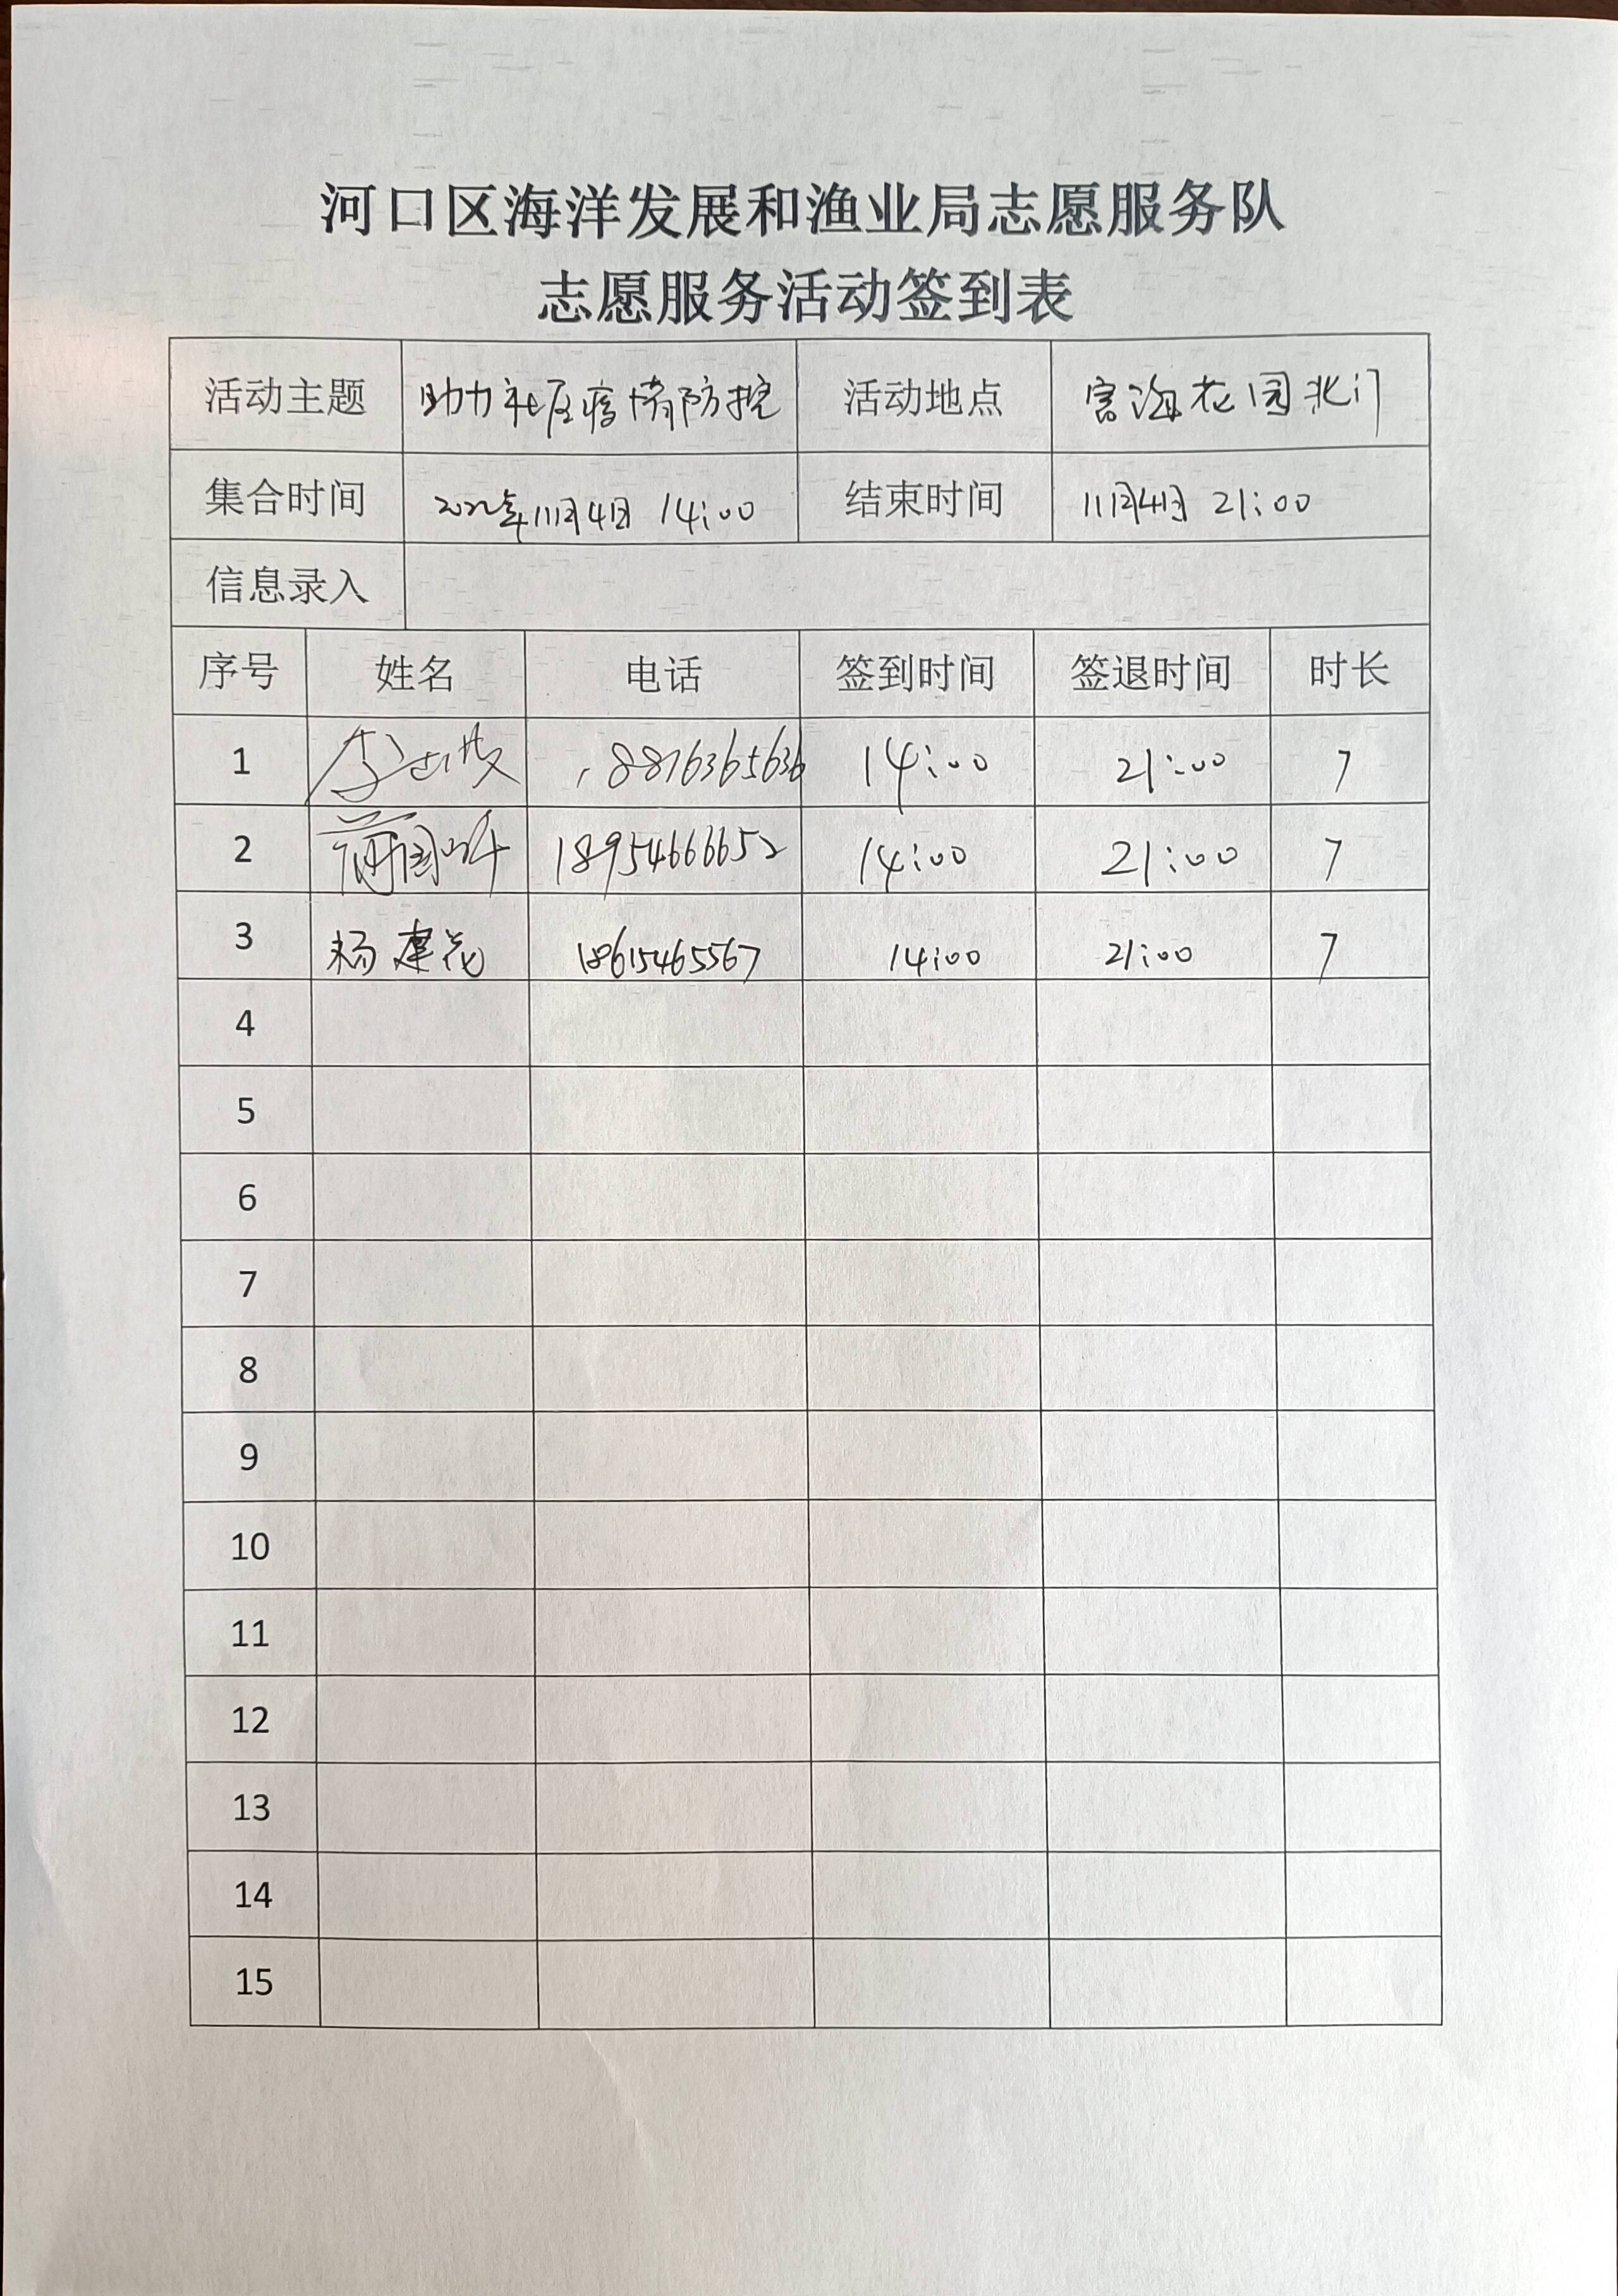 河口区海洋发展和渔业局志愿服务队
志愿服务活动签到表
活动主题 助力社区疫情防控 活动地点 富海花园北门
集合时间 2022年11月4日 14:00 结束时间 11月4日 21:00
信息录入
序号 姓名 电话 签到时间 签退时间 时长
1 李 18876365636 14:00 21:00 7
2 蒋国 18954666652 14:00 21:00 7
3 杨建花 18615465567 14:00 21:00 7
4
5
6
7
8
9
10
11
12
13
14
15